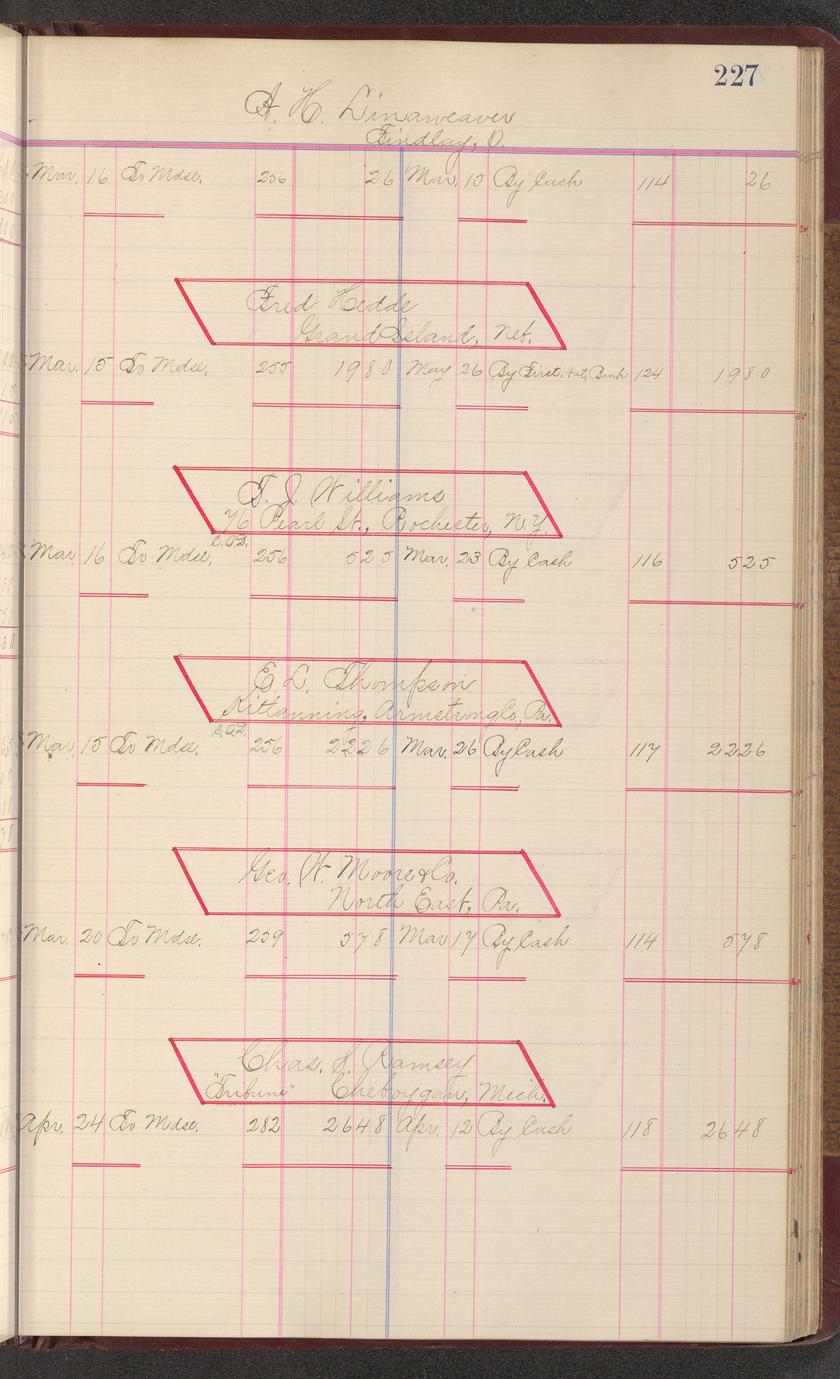 227
A. H. Linaweaver
Findlay, O.
Mar. 16 To Mdse. 256 26 Mar. 10 By Cash 114 26
Fred Hedde
Grand Island, Neb.
Mar. 15 To Mdse. 255 1980 May 26 By First. Nat. Bank 124 1980
T. J. Williams
76 Pearl St., Rochester, N.Y.
C.O.D.
Mar. 16 To Mdse. 256 525 Mar. 23 By Cash 116 525
E. L. Thompson
Kittanning, Armstrong Co, Pa.
C.O.D.
Mar. 15 To Mdse. 256 2226 Mar. 26 By Cash 117 2226
Geo. W. Moore & Co.
North East, Pa.
Mar. 20 To Mdse. 259 578 Mar 17 By Cash 114 578
Chas. S. Ramsey
"Tribune" Cheboygan, Mich.
Apr. 24 To Mdse. 282 2648 Apr. 12 By Cash 118 2648